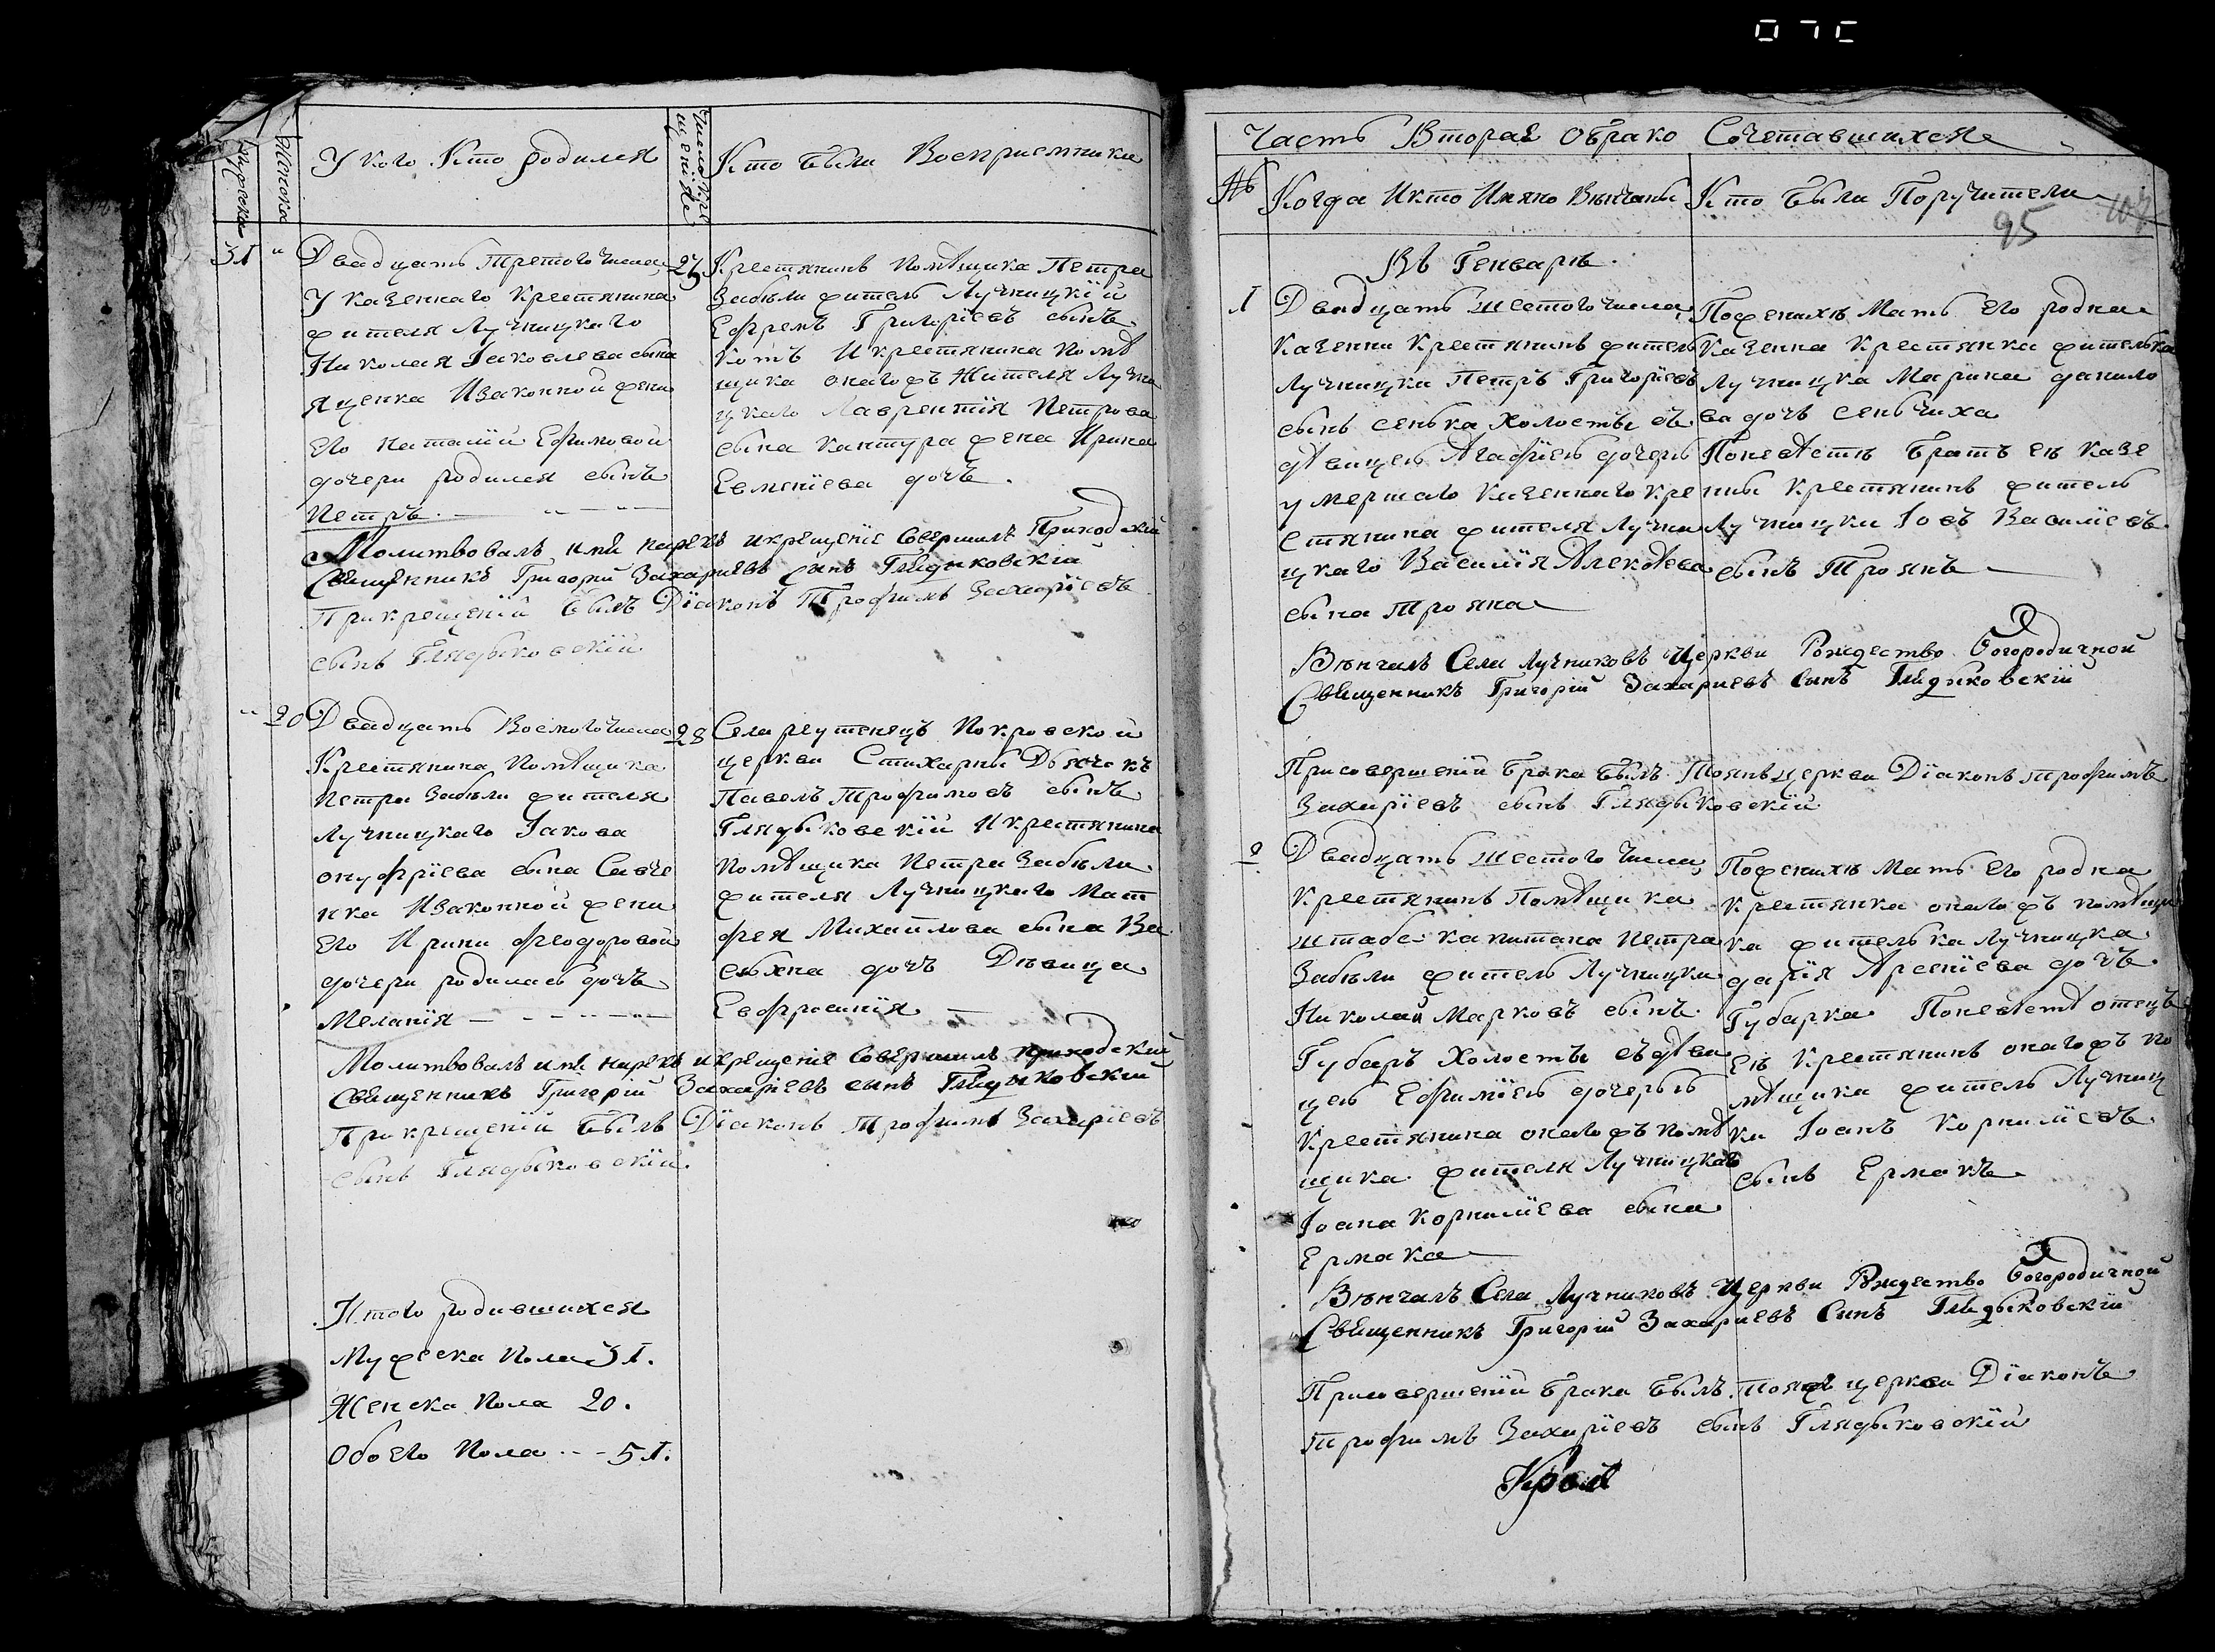 Мужеска
Женска
У кого Кто родился
Число крещенїя
Кто были Восприемники
31 "
Двадцать Третого Числа
У казенного Крестянина
жителя Лучницкаго
Николая Іаковлева сына
Яценка Изаконной жени
Его Наталїи Ефимовой
дочери родился сынъ
Петръ.
25
Крестянинъ помѣщика Петра
Забѣли житель Лучницкїй
Ефремъ Григорїевъ сынъ
котъ И крестянина помѣ
щика онагожъ Жителя Лучни
цкаго Лаврентїя Петрова
сына кантура жена Ирина
Евменїева дочъ.
Молитвовалъ, имя нарекъ и крещенїе Совершилъ Приходскїй
Священникъ Григорїй Захарїевъ Сынъ Глядыковскїй
Прикрещенїи былъ Дїаконъ Трофимъ Захарїевъ
сынъ Глядыковскїй
" 20
Двадцать Восмого числа
Крестянина Помѣщика
Петра Забѣли жителя
Лучницкаго Іакова
онуфрїева сына Савче
нка Изаконной жени
Его Ирини Феодоровой
дочери родилась дочъ
Меланїя
28
Села реутенецъ Покровской
церкви Стихарны Дьячокъ
Павелъ Трофимовъ сынъ
Глядыковскїй И крестянина
помѣщика Петра Забѣли
жителя Лучницкаго Мат
фея Михаилова сына Ва
сюхна дочъ Дѣвица
Евфросинїя
Молитвовалъ имя нарекъ и крещенїе Совершилъ приходскїй
Священникъ Григорїй Захарїевъ сынъ Глядыковскїй
Прикрещенїи былъ Дїаконъ Трофимъ Захарїевъ
сынъ Глядыковскїй
Итого родившихся
Мужеска пола 31.
Женска пола 20.
Обоего пола 51.
Часть Вторая обрако Сочетавшихся
№
Когда И кто Имяно Вѣнчаны
Кто были Поручители
95
Въ Генварѣ.
1
Двадцать шестого числа,
казенни крестянинъ житель
Лучницки Петръ Григорїевъ
сынъ сенька холосты съ
дѣвицею Агафїею дочерю
умершаго казенного кре
стянина жителя Лучни
цкаго Василїя Алексѣева
сына трояна
Поженихѣ Мать его родна
казенна крестянка жителька
Лучницка Марина данило
ва дочъ сеньчиха
Поневѣстѣ братъ еѣ казе
нны крестянинъ житель
Лучницки Іовъ Василїевъ
сынъ Троянъ
Вѣнчалъ Села Лучниковъ Церкви Рождество Богородичной
Священникъ Григорїй Захарїевъ Сынъ Глядыковскїй
Присовершенїи брака былъ Тояжъ церкви Дїаконъ трофимъ
Захарїевъ сынъ Глядыковскїй
2
Двадцать шестого Числа,
крестянинъ Помѣщика
штабс капитана Петра
Забѣли житель Лучницки
Николай Марковъ сынъ
Губаръ холосты съ дѣви
цею Ефимїею дочерью
крестянина онагожъ помѣ
щика жителя Лучницкаго
Іоана корнилїева сына
Ермака
Поженихѣ Мать Его родна
крестянка онагожъ помѣщи
ка жителька Лучницка
дарїя Арсенїева дочъ
Губарка Поневѣстѣ отецъ
еѣ крестянинъ онагожъ по
мѣщика житель Лучниц
ки Іоанъ Корнилїевъ
сынъ Ермакъ
Вѣнчалъ Села Лучниковъ Церкви Рождество Богородичной
Священникъ Григорїй Захарїевъ Сынъ Глядыковскїй
Присовершенїи брака былъ тояжъ церкви Дїаконъ
Трофимъ Захарїевъ сынъ Глядыковскїй